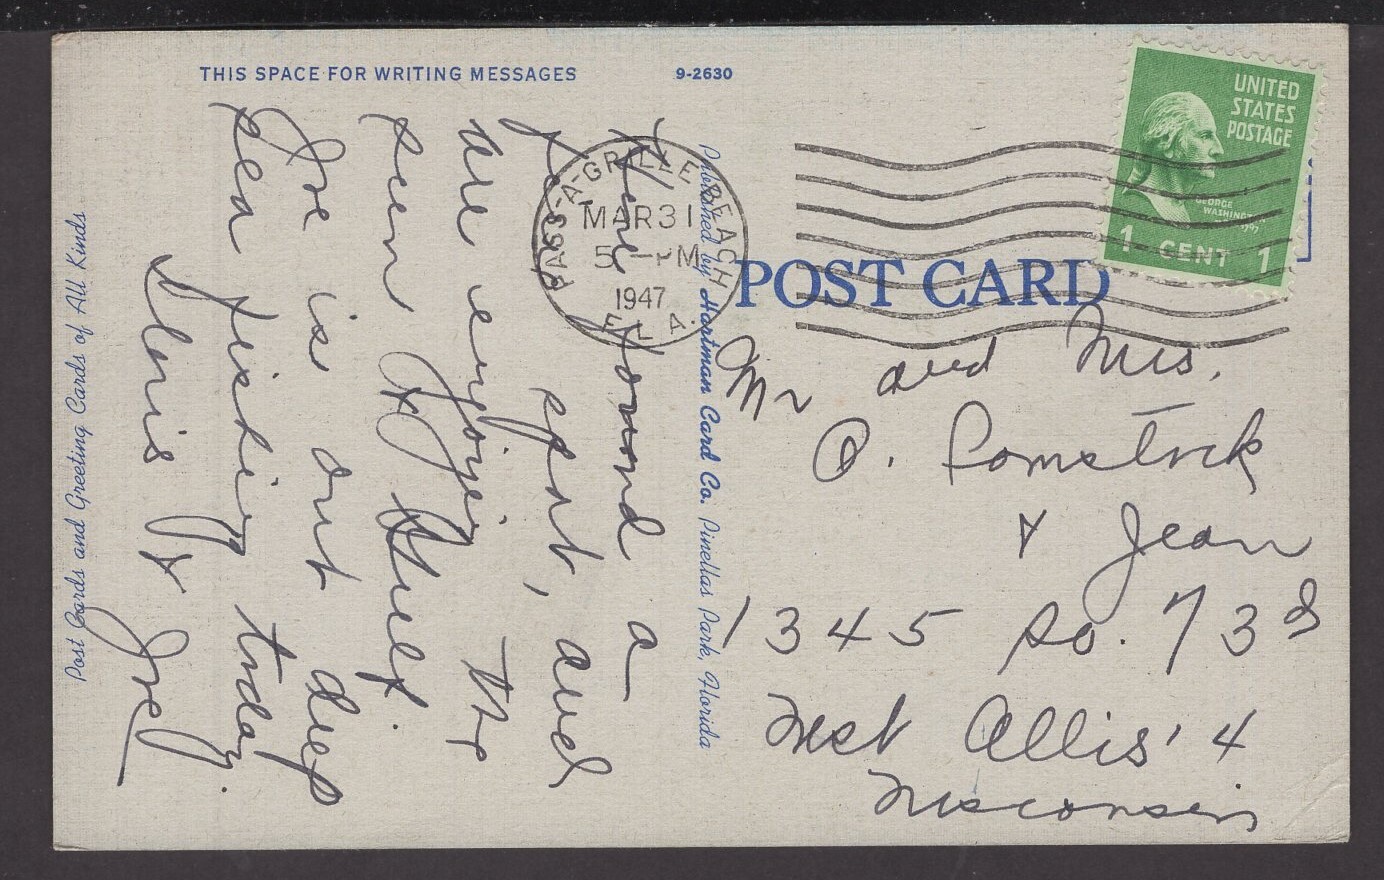 THIS SPACE FOR WRITING MESSAGES
9-2630
Have found a
spot, and
are enjoying the
sun & Gulf.
Joe is out deep
sea fishing today.
Doris & Joe
Post Cards and Greeting Cards of All Kinds
Published by Hartman Card Co. Pinellas Park, Florida
PASS-A-GRILLE BEACH
MAR 31
5 -PM
1947
FLA.
UNITED
STATES
POSTAGE
GEORGE
WASHINGTON
1 CENT 1
POST CARD
Mr and Mrs.
O. Comstock
& Jean
1345 So. 73d
West Allis' 4
Wisconsin